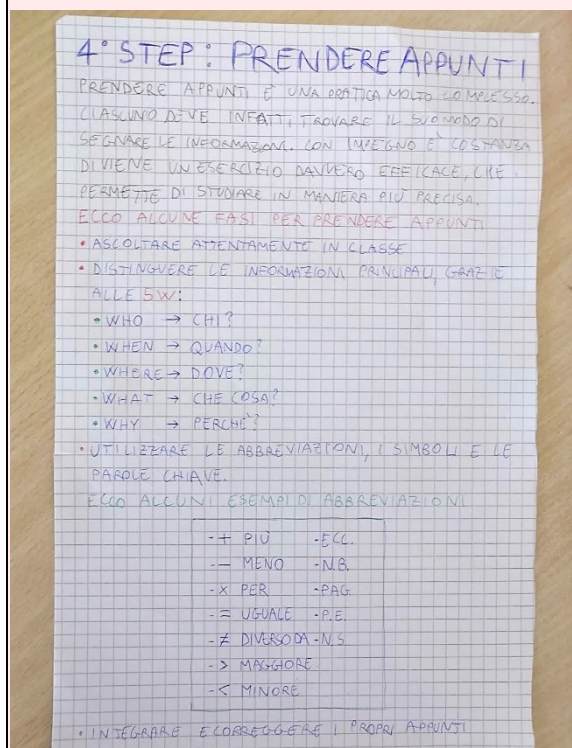 4° STEP: PRENDERE APPUNTI
PRENDERE APPUNTI È UNA PRATICA MOLTO COMPLESSO.
CIASCUNO DEVE INFATTI, TROVARE IL SUO MODO DI
SEGNARE LE INFORMAZIONI. CON IMPEGNO E COSTANZA
DIVIENE UN ESERCIZIO DAVVERO EFFICACE, CHE
PERMETTE DI STUDIARE IN MANIERA PIÙ PRECISA.
ECCO ALCUNE FASI PER PRENDERE APPUNTI
• ASCOLTARE ATTENTAMENTE IN CLASSE
• DISTINGUERE LE INFORMAZIONI PRINCIPALI, GRAZIE
ALLE 5W:
• WHO → CHI?
• WHEN → QUANDO?
• WHERE → DOVE?
• WHAT → CHE COSA?
• WHY → PERCHÈ?
• UTILIZZARE LE ABBREVIAZIONI, I SIMBOLI E LE
PAROLE CHIAVE.
ECCO ALCUNI ESEMPI DI ABBREVIAZIONI
-+ PIÙ -ECC.
-− MENO -N.B.
-X PER -PAG.
-= UGUALE -P.E.
-≠ DIVERSO DA -N.S
-> MAGGIORE
-< MINORE
• INTEGRARE E CORREGGERE I PROPRI APPUNTI